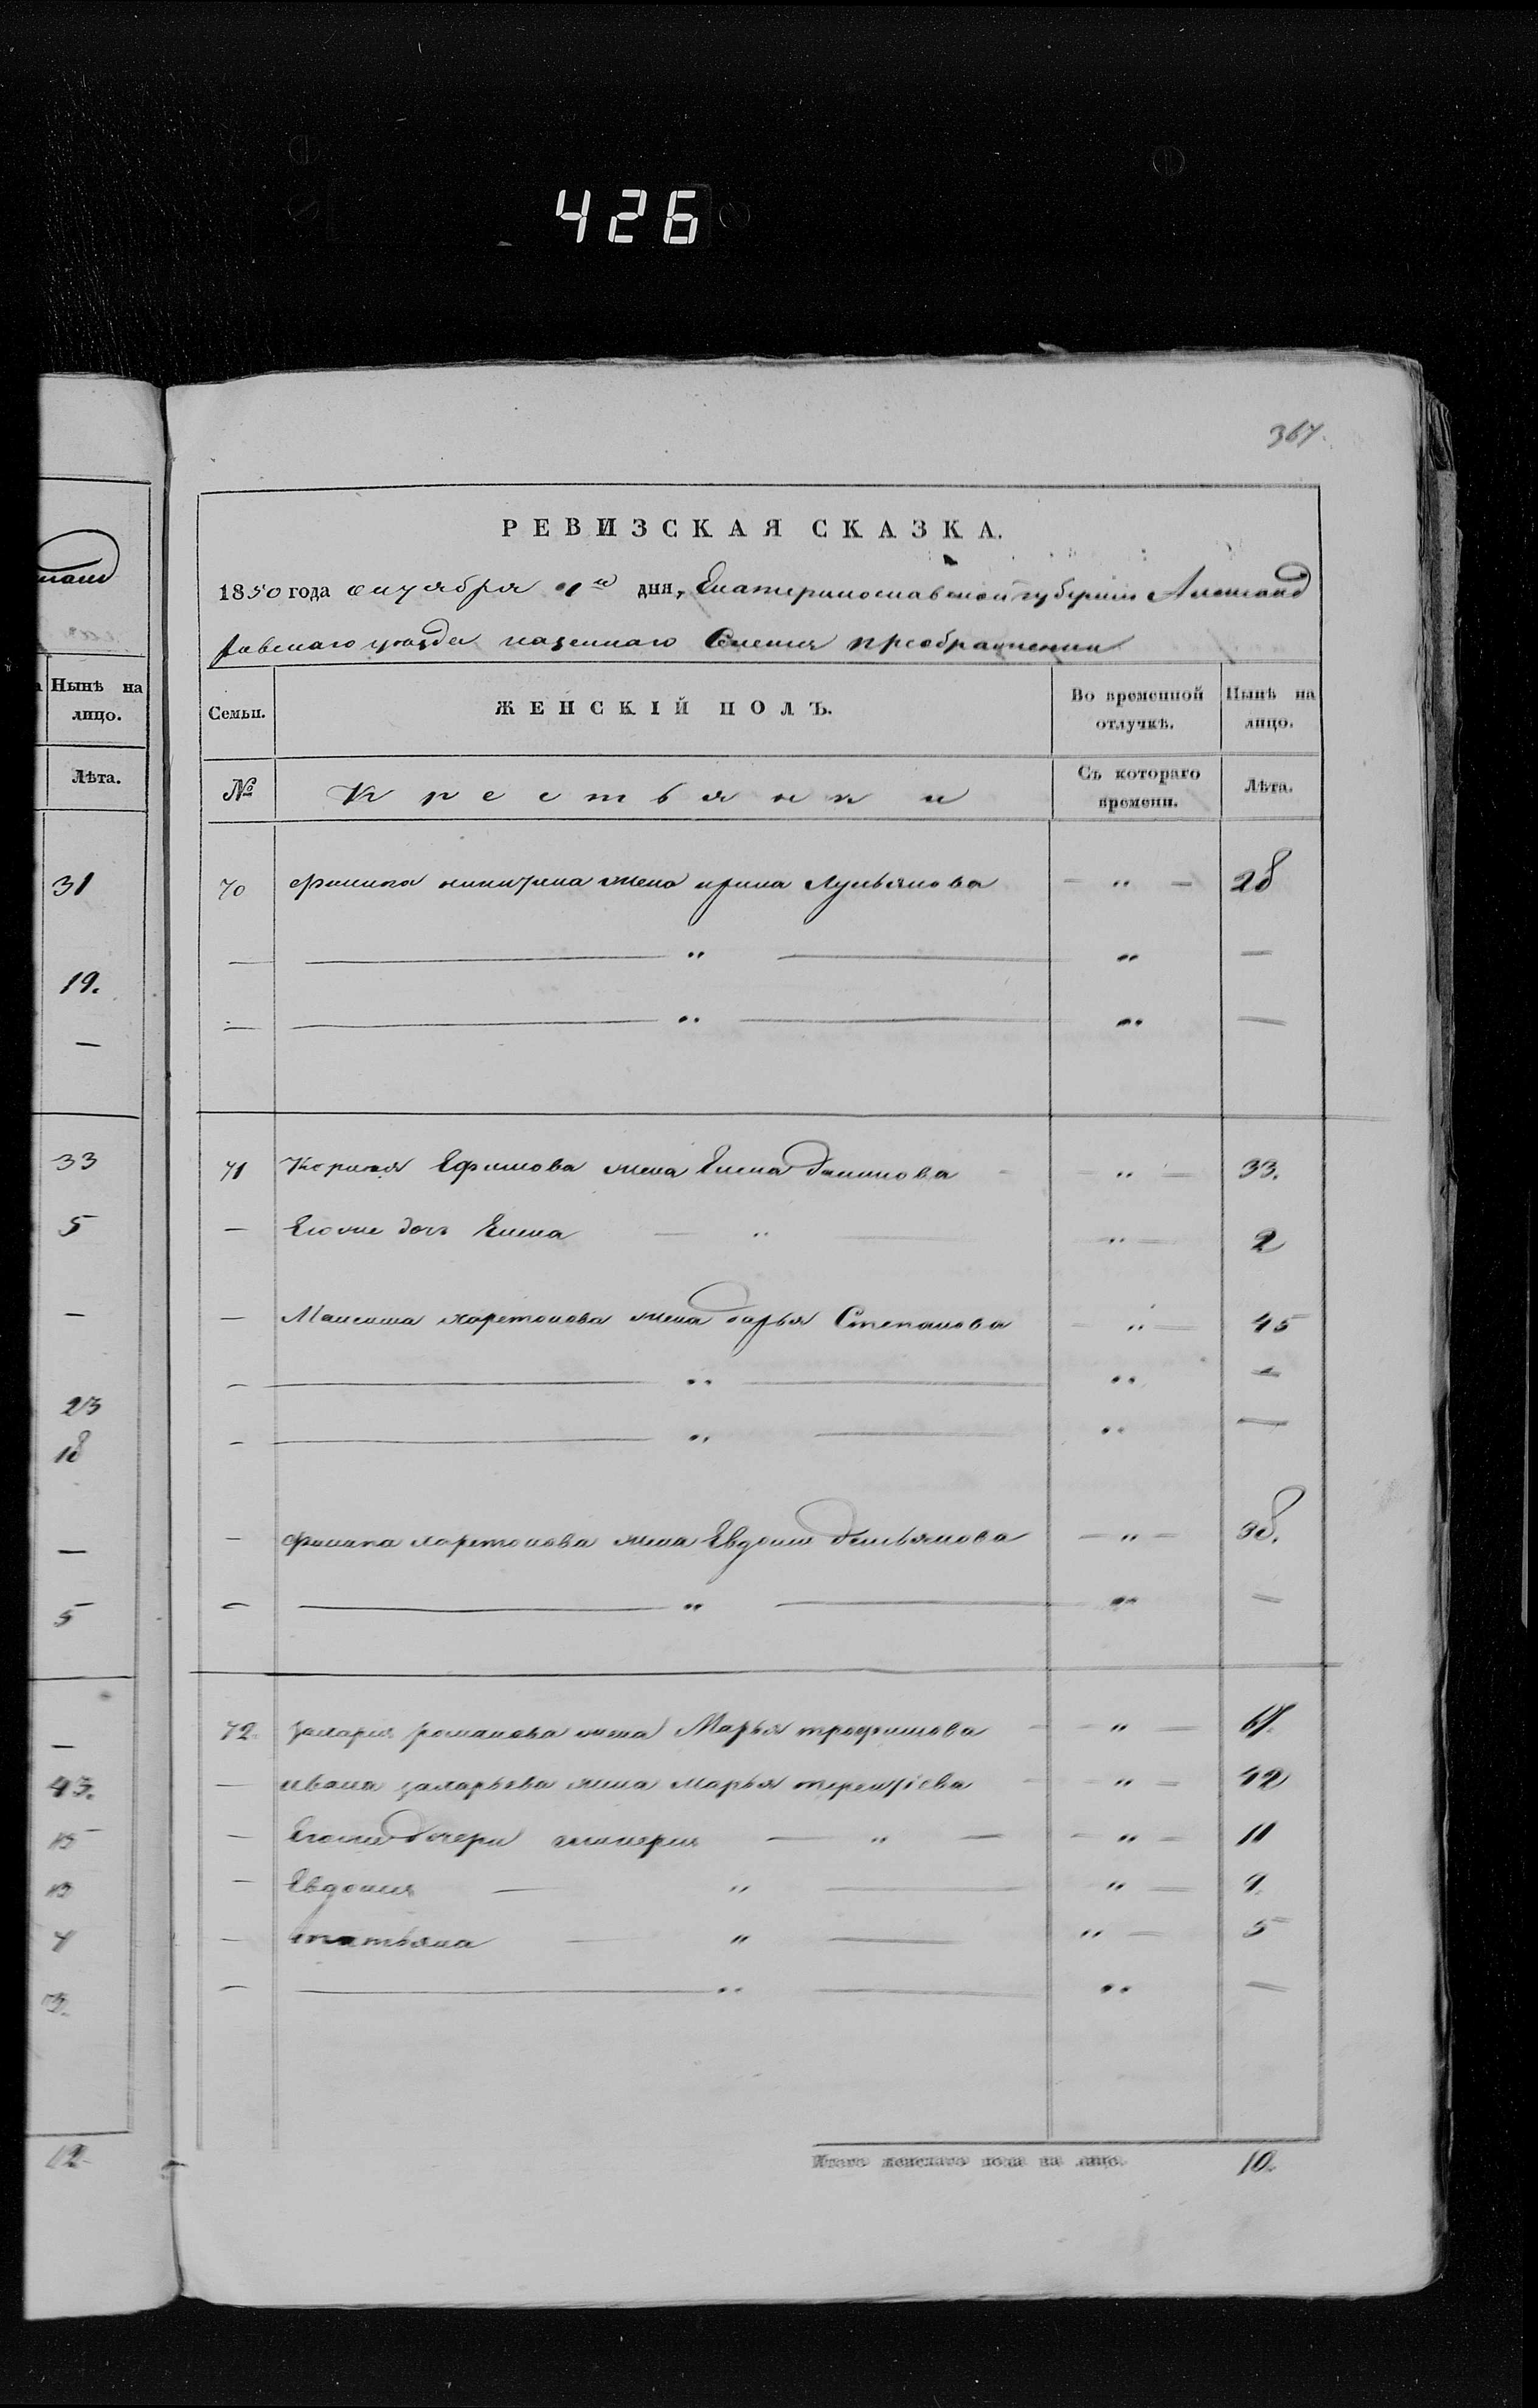 426
367.
наго
Нынѣ на
лицо.
Лѣта.
31
19.
—
33
5
—
23
18
—
5
—
43.
15
13
7
3.
12
РЕВИЗСКАЯ СКАЗКА.
1850 года октября дня, Екатеринославской губерніи Александ
ровскаго уезда казеннаго Селенія преображенки
Семьи. ЖЕНСКІЙ ПОЛЪ. Во временной отлучкѣ. Нынѣ на лицо.
№ Крестьянки Съ котораго времени. Лѣта.
70 филипа никитина жена ирина Лукьянова — „ — 28
— — „ — „ —
— — „ — „ —
71 Корнея Ефимова жена Елена данилова — „ — 33.
— Егоже дочь Елена — „ — „ — 2
— Максима харетонова жена дарья Степанова — „ — 45
— — „ — „ —
— — „ — „ —
— филипа харетонова жена Евдокия демьянова — „ — 38.
— — „ — „ —
72. захария романова жена Марья трофимова — „ — 67.
— ивана захарьева жена марья терентіева — „ — 42
— Егоже дочери гликерия — „ — — „ — 11
— Евдокия — „ — „ — 9.
— татьяна — „ — „ — 5
— — „ — „ —
Итого женскаго пола на лицо. 10.